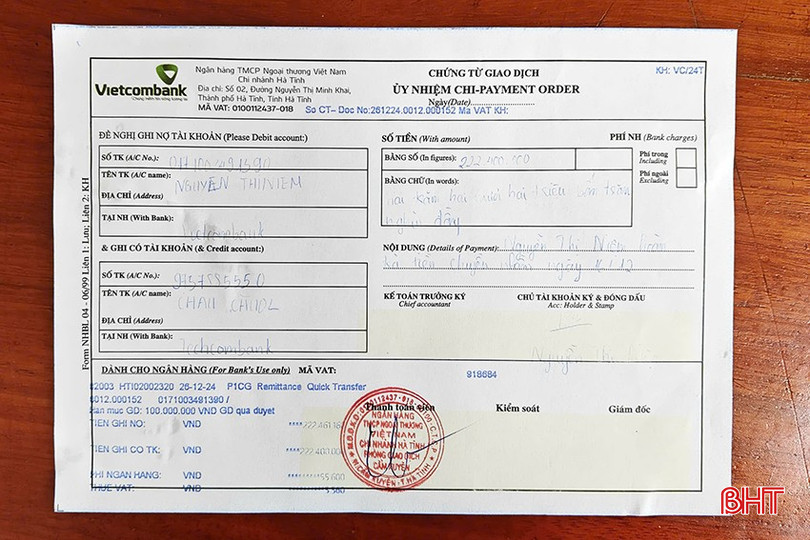 Vietcombank
Chung niềm tin vững tương lai
Ngân hàng TMCP Ngoại thương Việt Nam
Chi nhánh Hà Tĩnh
Địa chỉ: Số 02, Đường Nguyễn Thị Minh Khai,
Thành phố Hà Tĩnh, Tỉnh Hà Tĩnh
MÃ VAT: 0100112437-018
CHỨNG TỪ GIAO DỊCH
ỦY NHIỆM CHI-PAYMENT ORDER
Ngày(Date)
KH: VC/24T
So CT- Doc No:261224.0012.000152 Ma VAT KH:
ĐỀ NGHỊ GHI NỢ TÀI KHOẢN (Please Debit account:)
SỐ TK (A/C No.):
TÊN TK (A/C name): NGUYỄN THỊ NIỆM
ĐỊA CHỈ (Address)
TẠI NH (With Bank): Vietcombank
& GHI CÓ TÀI KHOẢN (& Credit account:)
SỐ TK (A/C No.):
TÊN TK (A/C name): CHAU
ĐỊA CHỈ (Address)
TẠI NH (With Bank): Techcombank
SỐ TIỀN (With amount)
PHÍ NH (Bank charges)
BẰNG SỐ (In figures): 222.400.000
Phí trong
Including
Phí ngoài
Excluding
BẰNG CHỮ (In words):
hai trăm hai mươi hai triệu bốn trăm
nghìn đồng
NỘI DUNG (Details of Payment): Nguyễn Thị Niệm
trả tiền chuyển nhầm ngày
KẾ TOÁN TRƯỞNG KÝ
Chief accountant
CHỦ TÀI KHOẢN KÝ & ĐÓNG DẤU
Acc: Holder & Stamp
Nguyễn Thị
Form NHBL 04 - 06/99 Liên 1: Lưu; Liên 2: KH
DÀNH CHO NGÂN HÀNG (For Bank's Use only) MÃ VAT:
918684
HTI02002320 26-12-24 P1CG Remittance Quick Transfer
0012.000152 0171003491390 /
Han muc GD: 100.000.000 VND GD qua duyet
TIEN GHI NO: VND
TIEN GHI CO TK: VND
PHI NGAN HANG: VND
THUE VAT: VND
Thanh toán viên
Kiểm soát
Giám đốc
NGÂN HÀNG
TMCP NGOẠI THƯƠNG
VIỆT NAM
CHI NHÁNH HÀ TĨNH
PHÒNG GIAO DỊCH
CẨM XUYÊN
H.CẨM XUYÊN-T.HÀ TĨNH
BHT